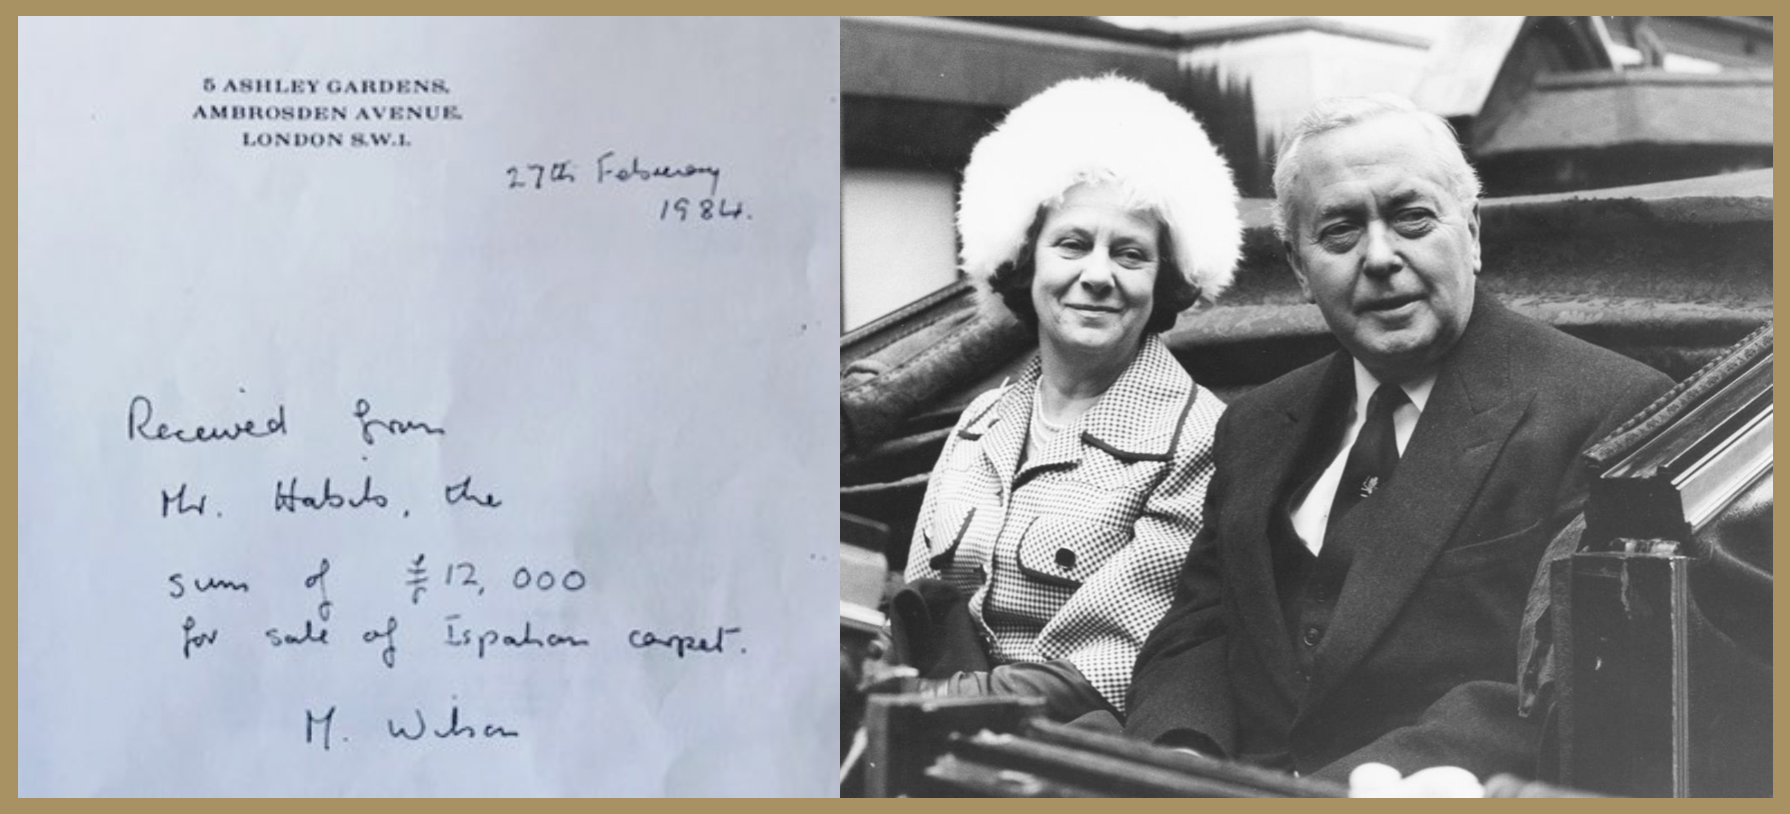 5 ASHLEY GARDENS,
AMBROSDEN AVENUE,
LONDON S.W.1.
27th February
1984.
Received from
Mr. Habib, the
sum of £12,000
for sale of Ispahan carpet.
M. Wilson